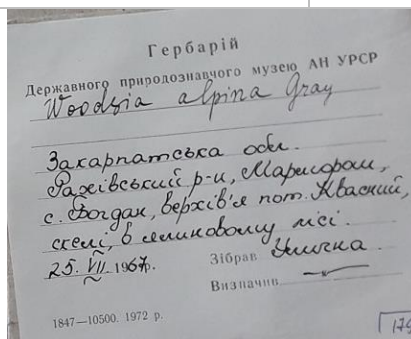 Гербарій
Державного природознавчого музею АН УРСР
Woodsia alpina Gray
Закарпатська обл.
Рахівський р-н, Мармарош,
с. Богдан, верхів'я пот. Квасний,
скелі, в ялиновому лісі.
25. VII. 1967р.
Зібрав Уличка.
Визначив
1847—10500. 1972 р.